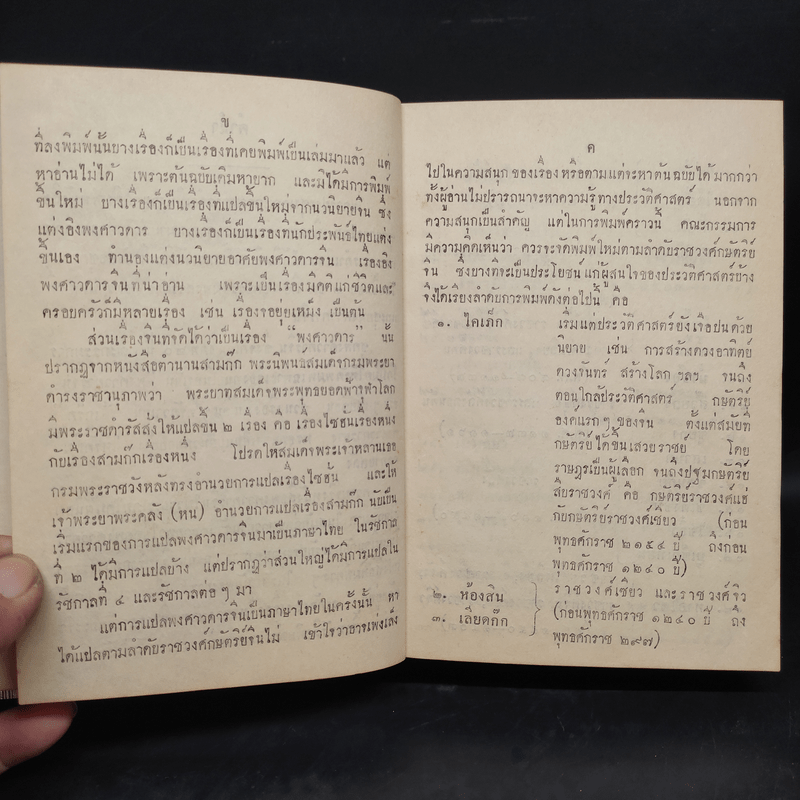 ข
ที่ลงพิมพ์นั้นบางเรื่องก็เป็นเรื่องที่เคยพิมพ์เป็นเล่มมาแล้ว แต่
หาอ่านไม่ได้ เพราะต้นฉบับเดิมหายาก และมิได้มีการพิมพ์
ขึ้นใหม่ บางเรื่องก็เป็นเรื่องที่แปลขึ้นใหม่จากนวนิยายจีน ซึ่ง
แต่งอิงพงศาวดาร บางเรื่องก็เป็นเรื่องที่นักประพันธ์ไทยแต่ง
ขึ้นเอง ทำนองแต่งนวนิยายอาศัยพงศาวดารจีน เรื่องอิง
พงศาวดารจีนที่น่าอ่าน เพราะเป็นเรื่องมีคติแก่ชีวิตและ
ครอบครัวก็มีหลายเรื่อง เช่น เรื่องจอยุ่ยเหม็ง เป็นต้น
ส่วนเรื่องจีนที่จัดได้ว่าเป็นเรื่อง “พงศาวดาร” นั้น
ปรากฏจากหนังสือตำนานสามก๊ก พระนิพนธ์สมเด็จกรมพระยา
ดำรงราชานุภาพว่า พระบาทสมเด็จพระพุทธยอดฟ้าจุฬาโลก
มีพระราชดำรัสสั่งให้แปลขึ้น ๒ เรื่อง คือ เรื่องไซฮั่นเรื่องหนึ่ง
กับเรื่องสามก๊กเรื่องหนึ่ง โปรดให้สมเด็จพระเจ้าหลานเธอ
กรมพระราชวังหลังทรงอำนวยการแปลเรื่องไซฮั่น และให้
เจ้าพระยาพระคลัง (หน) อำนวยการแปลเรื่องสามก๊ก นับเป็น
เริ่มแรกของการแปลพงศาวดารจีนมาเป็นภาษาไทย ในรัชกาล
ที่ ๒ ได้มีการแปลบ้าง แต่ปรากฏว่าส่วนใหญ่ได้มีการแปลใน
รัชกาลที่ ๔ และรัชกาลต่อ ๆ มา
แต่การแปลพงศาวดารจีนเป็นภาษาไทยในครั้งนั้น หา
ได้แปลตามลำดับราชวงศ์กษัตริย์จีนไม่ เข้าใจว่าอาจเพ่งเล็ง
ค
ไปในความสนุกของเรื่อง หรือตามแต่จะหาต้นฉบับได้ มากกว่า
ทั้งผู้อ่านไม่ปรารถนาจะหาความรู้ทางประวัติศาสตร์ นอกจาก
ความสนุกเป็นสำคัญ แต่ในการพิมพ์คราวนี้ คณะกรรมการ
มีความคิดเห็นว่า ควรจะจัดพิมพ์ใหม่ตามลำดับราชวงศ์กษัตริย์
จีน ซึ่งบางทีจะเป็นประโยชน์แก่ผู้สนใจของประวัติศาสตร์บ้าง
จึงได้เรียงลำดับการพิมพ์ดังต่อไปนี้ คือ
๑. ไคเภ็ก เริ่มแต่ประวัติศาสตร์ยังเจือปนด้วย
นิยาย เช่น การสร้างดวงอาทิตย์
ดวงจันทร์ สร้างโลก ฯลฯ จนถึง
ตอนใกล้ประวัติศาสตร์ กษัตริย์
องค์แรก ๆ ของจีน ตั้งแต่สมัยที่
กษัตริย์ได้ขึ้นเสวยราชย์ โดย
ราษฎรเป็นผู้เลือก จนถึงปฐมกษัตริย์
สืบราชวงศ์ คือ กษัตริย์ราชวงศ์แฮ่
กับกษัตริย์ราชวงศ์เซียว (ก่อน
พุทธศักราช ๒๑๕๔ ปี ถึงก่อน
พุทธศักราช ๑๒๔๐ ปี)
๒. ห้องสิน ราชวงศ์เซียว และราชวงศ์จิว
๓. เลียดก๊ก (ก่อนพุทธศักราช ๑๒๔๐ ปี ถึง
พุทธศักราช ๒๙๗)